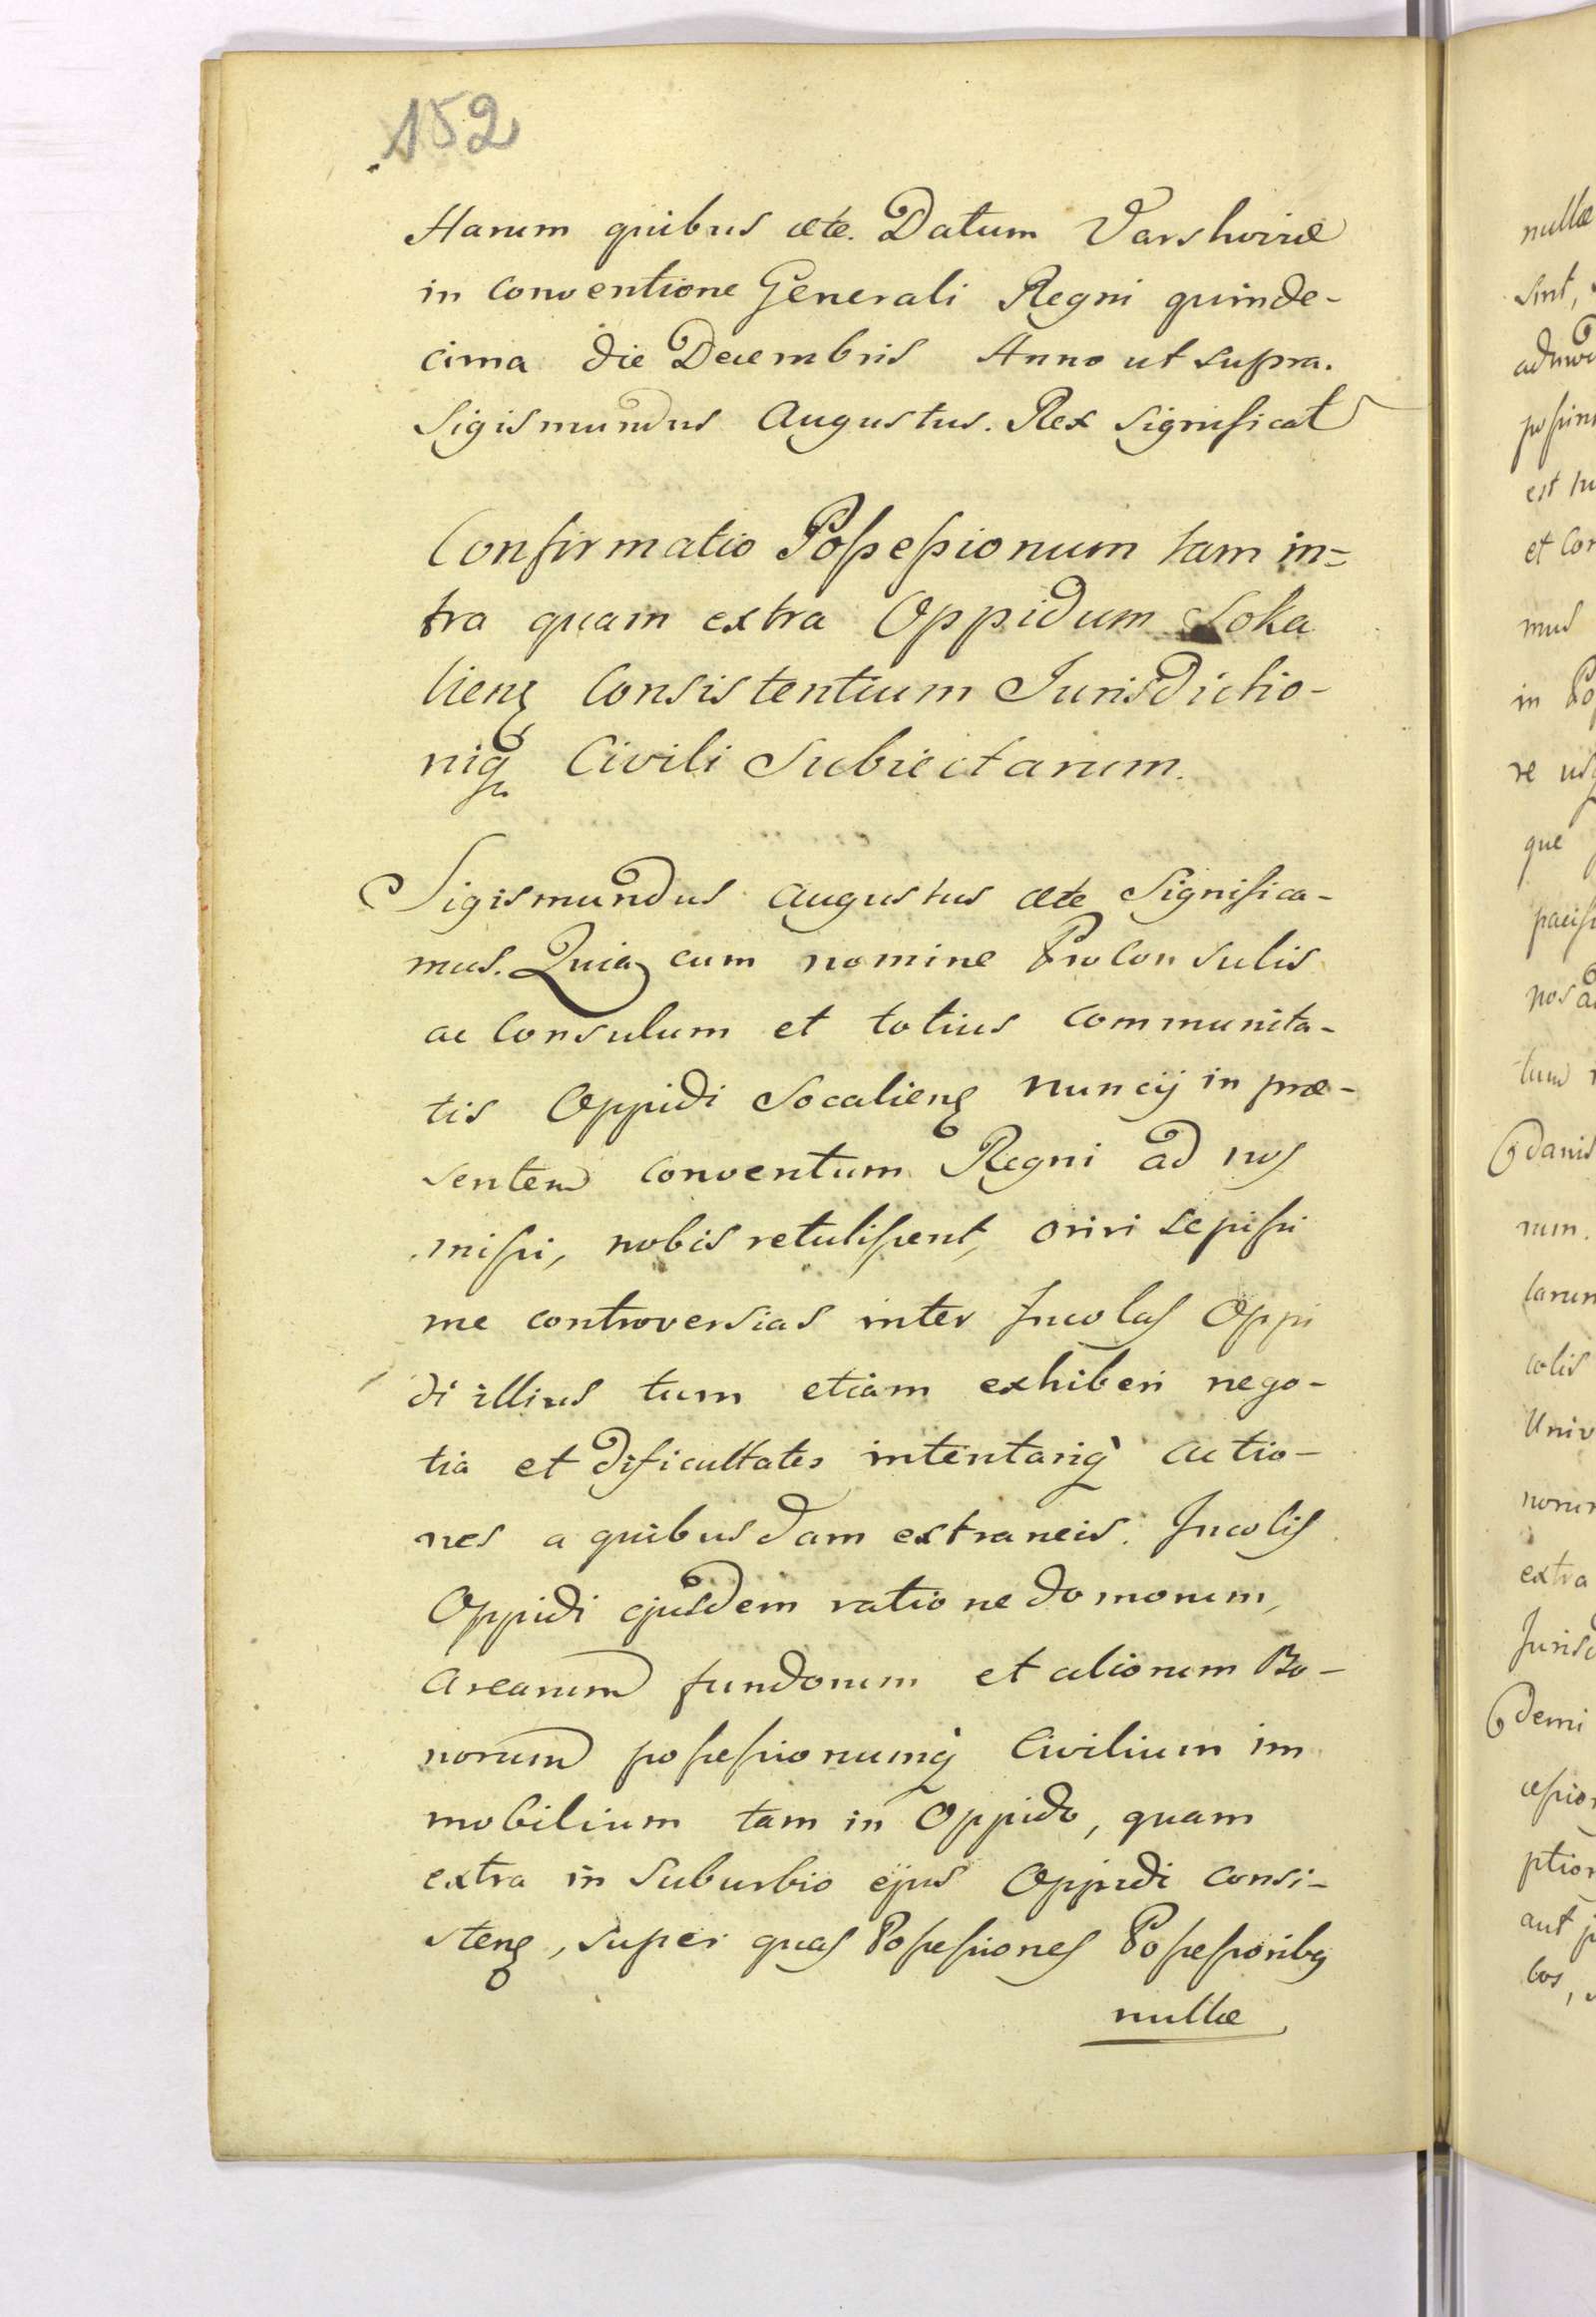 152
Harum quibus ætc. Datum Varshoviæ
in conventione Generali Regni quinde-
cima die Decembris Anno ut supra.
Sigismundus Augustus. Rex significat
Confirmatio Poſseſsionum tam in=
tra quam extra Oppidum Soka
lienꝫ Consistentium Jurisdictio-
niqꝫ Civili Subiectarum.
Sigismundus Augustus ætc Significa-
mus. Quia cum nomine ProConsulis
ac Consulum et totius communita-
tis Oppidi Socalienꝫ nuncij in præ-
sentem conventum Regni ad nos
miſsi, nobis retuliſsent, oriri sepiſsi
me controversias inter Incolas Oppi
di illius tum etiam exhiberi nego-
tia et dificultates intentariq̀ actio-
nes a quibusdam extraneis. Incolis
Oppidi ejusdem ratione domorum,
arearum fundorum et aliorum Bo-
norum poſseſsionumq̀ Civilium im
mobilium tam in Oppido, quam
extra in suburbio ejus Oppidi consi-
stenꝫ, super quas Poſseſsiones Poſseſsoribꝫ
nullæ
nullæ
sint,
poſsint
est
et Con
mus
in
re
que
nos
danis
rum.
colis
Univ
norum
extra
Jurisd
demi
ption
aut